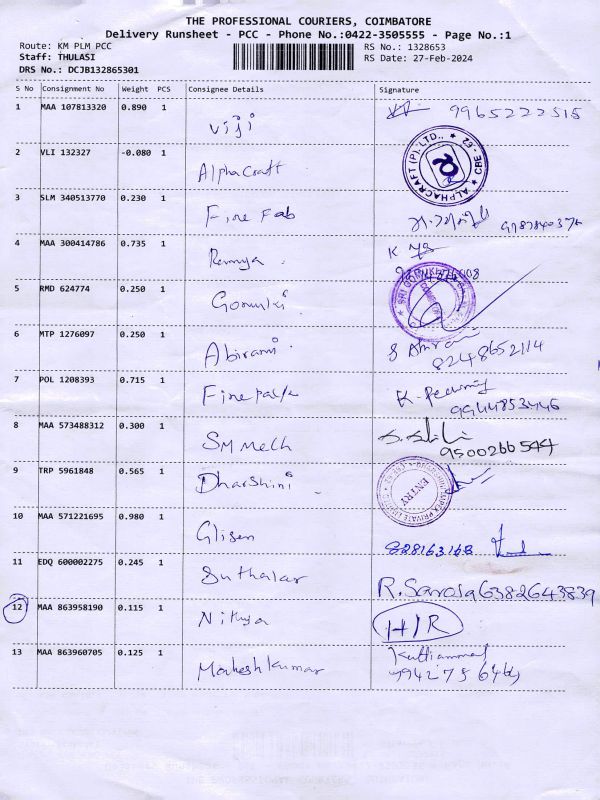 THE PROFESSIONAL COURIERS, COIMBATORE
Delivery Runsheet - PCC - Phone No.:0422-3505555 - Page No.:1
Route: KM PLM PCC RS No.: 1328653
Staff: THULASI RS Date: 27-Feb-2024
DRS No.: DCJB132865301
S No Consignment No Weight PCS Consignee Details Signature
1 MAA 107813320 0.890 1 Viji 9965222515
2 VLI 132327 -0.080 1 AlphaCraft ALPHACRAFT (P) LTD., CBE - 62
3 SLM 340513770 0.230 1 Fine Fab
4 MAA 300414786 0.735 1 Ramya K
5 RMD 624774 0.250 1 SRI
6 MTP 1276097 0.250 1 Abirami 8248652114
7 POL 1208393 0.715 1 K. 9944853446
8 MAA 573488312 0.300 1 SM Mech 9500266544
9 TRP 5961848 0.565 1 Dharshini ENTRY
10 MAA 571221695 0.980 1 Glisen
11 EDQ 600002275 0.245 1 Suthalar R. Saroja 6382643839
12 MAA 863958190 0.115 1 Nithya H/R
13 MAA 863960705 0.125 1 Maheshkumar Kuttiammal